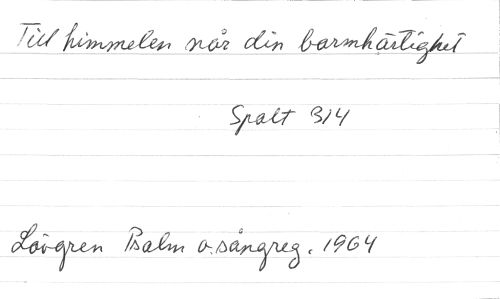 Till himmelen når din barmhärtighet
Spalt 314
Lövgren Psalm o. sångreg. 1964